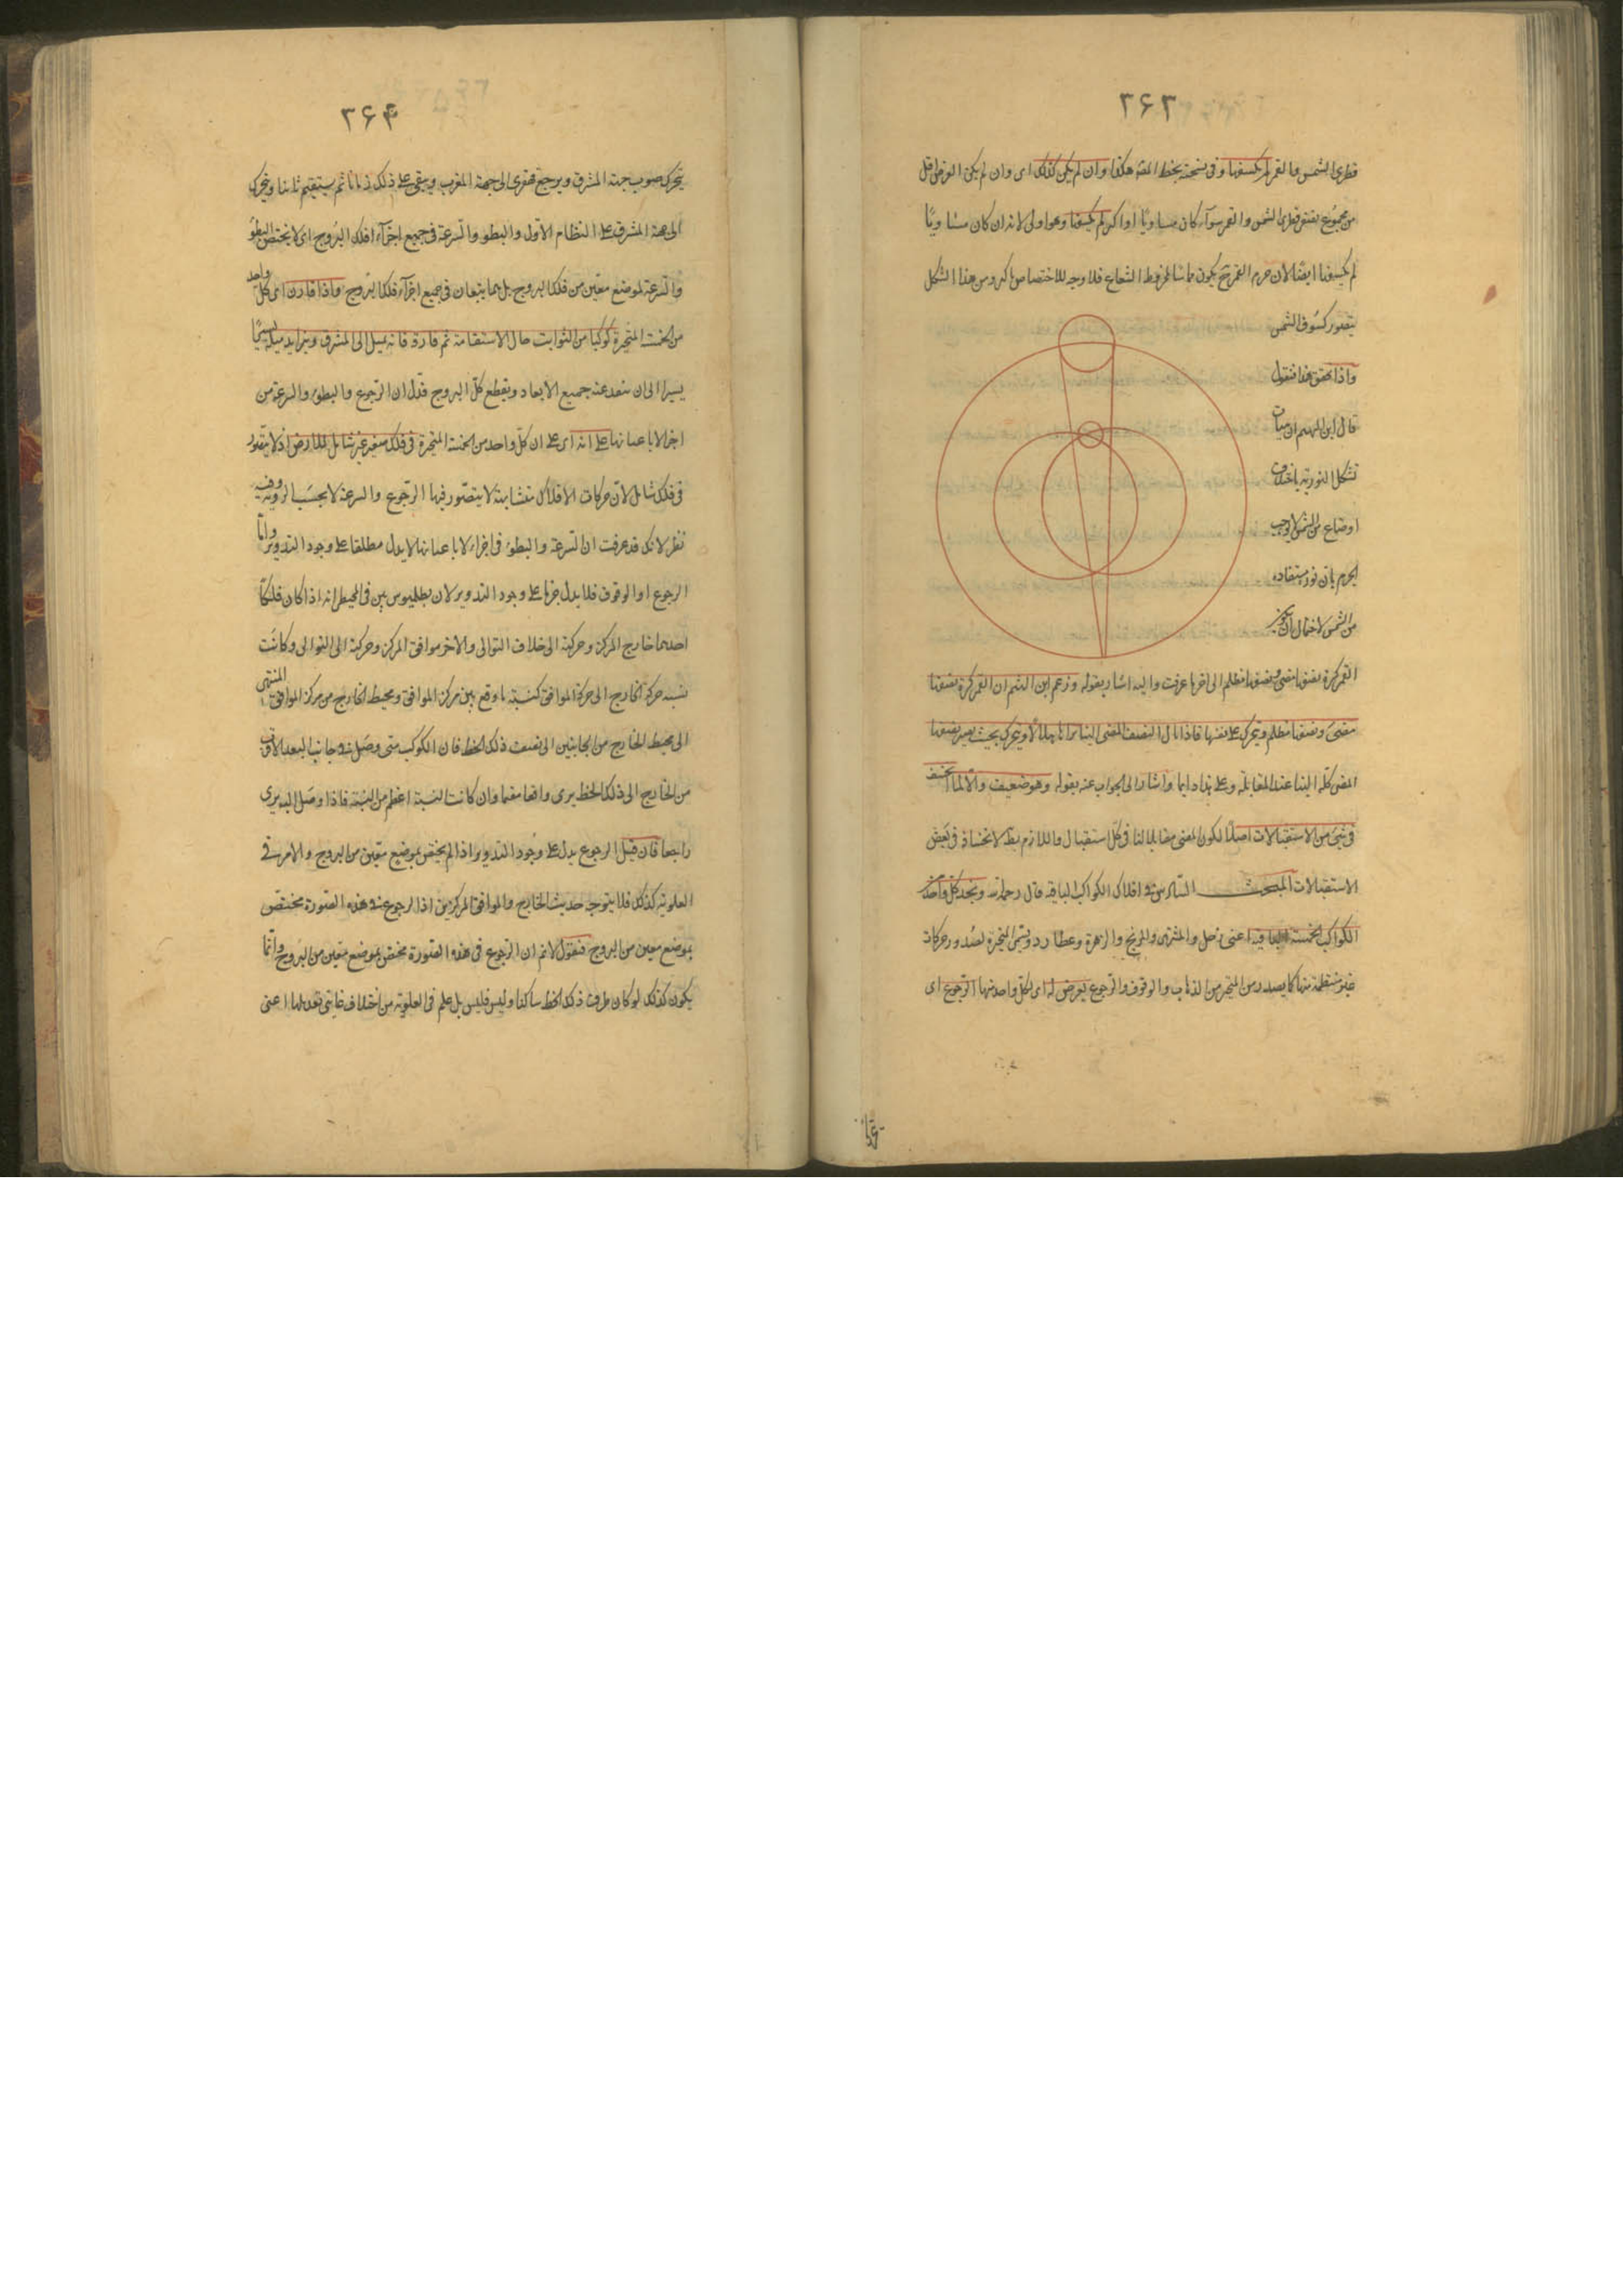 ٢۶٣
قطرى الشمس والقمر لم يكسفها وفى نسخة بخط المصنف هكذا وان لم يكن كذلك اى وان لم يكن العرض اقل
من مجموع نصفى قطرى الشمس والقمر سوآء كان مساويًا او اكثر لم يكسفها وهو اولى لانه ان كان مساويًا
لم يكسفها ايضًا لان جرم القمر ح يكون مماسًا لمخروط الشعاع فلا وجه للاختصاص باكثر ومن هذا الشكل
يتصور كسوف الشمس
واذا تحقق هذا فنقول
قال ابن الهيثم ان
تشكل النورية باختلاف
اوضاعه من الشمس لا يوجب
الجزم بان نوره مستفاد
من الشمس لاحتمال ان يكون
القمر كرة نصفها مضئ ونصفها مظلم الى اخر ما عرفت واليه اشار بقوله وزعم ابن الهيثم ان القمر كرة نصفها
مضئ ونصفها مظلم ويتحرك على نفسها فاذا مال النصف المضئ الينا نراه هلالًا ويتحرك بحيث يصير نصفها
المضئ كله الينا عند المقابلة وعلى هذا دايما واشار الى الجواب عنه بقوله وهو ضعيف والا لما انخسف
فى شئ من الاستقبالات اصلًا لكون المضئ مقابلا لنا فى كل استقبال واللازم بط لانخسافه فى بعض
الاستقبالات المبحث السادس فى افلاك الكواكب الباقية قال رحمه الله ونجد كل واحد من
الكواكب الخمسة الباقية اعنى زحل والمشترى والمريخ والزهرة وعطارد وتسمى المتحيرة لصدور حركات
غير منتظمة منها كما يصدر من المتحير من الذهاب والوقوف والرجوع يعرض له اى لكل واحد منها الرجوع اى
٢۶۴
يتحرك صوب جهة المشرق ويرجع قهقرى الى جهة المغرب ويبقى على ذلك زمانا ثم يستقيم ثانيا ويتحرك
الى جهة المشرق على النظام الاول والبطؤ والسرعة فى جميع اجزآء فلك البروج اى لا يختص البطؤ
والسرعة بموضع معين من فلك البروج بل هما يتبعان فى جميع اجزآء فلك البروج واذا قارن اى كل واحد
من الخمسة المتحيرة كوكبا من الثوابت حال الاستقامة ثم فارقه فانه يميل الى المشرق ويتزايد ميله يسيرًا
يسيرا الى ان يبعد عنه جميع الابعاد ويقطع كل البروج فدل ان الرجوع والبطؤ والسرعة من
اجزآء لا باعيانها على انه اى على ان كل واحد من الخمسة المتحيرة فى فلك صغير غير شامل للارض اذ لا يتصور
فى فلك شامل لان حركات الافلاك متشابهة لا يتصور فيها الرجوع والسرعة لا بحسب الروية وفيه
نظر لانك قد عرفت ان السرعة والبطؤ فى اجزاء لا باعيانها لا يدل مطلقا على وجود التدوير واما
الرجوع او الوقوف فلا يدل جزما على وجود التدوير لان بطلميوس بين فى المجسطى انه اذا كان فلكان
احدهما خارج المركز وحركته الى خلاف التوالى والاخر موافق المركز وحركته الى التوالى وكانت
نسبة حركة الخارج الى حركة الموافق كنسبة ما وقع بين مركز الموافق ومحيط الخارج من مركز الموافق المنتهى
الى محيط الخارج من الجانبين الى نصف ذلك الخط فان الكوكب متى وصل فى جانب البعد الاقرب
من الخارج الى ذلك الخط يرى واقفا مقيما وان كانت النسبة اعظم من النسبة فاذا وصل اليه يرى
راجعا فان قيل الرجوع يدل على وجود التدوير اذا لم يختص بموضع معين من البروج والامر فى
العلوية كذلك فلا يتوجه حديث الخارج والموافق المركزين اذ الرجوع فى هذه الصورة مختص
بموضع معين من البروج فنقول لا نم ان الرجوع فى هذه الصورة مختص بموضع معين من البروج وانما
يكون كذلك لو كان طرفا ذلك الخط ساكنا وليس فليس بل علم فى العلوية من اختلاف غايتى تعديلها اعنى